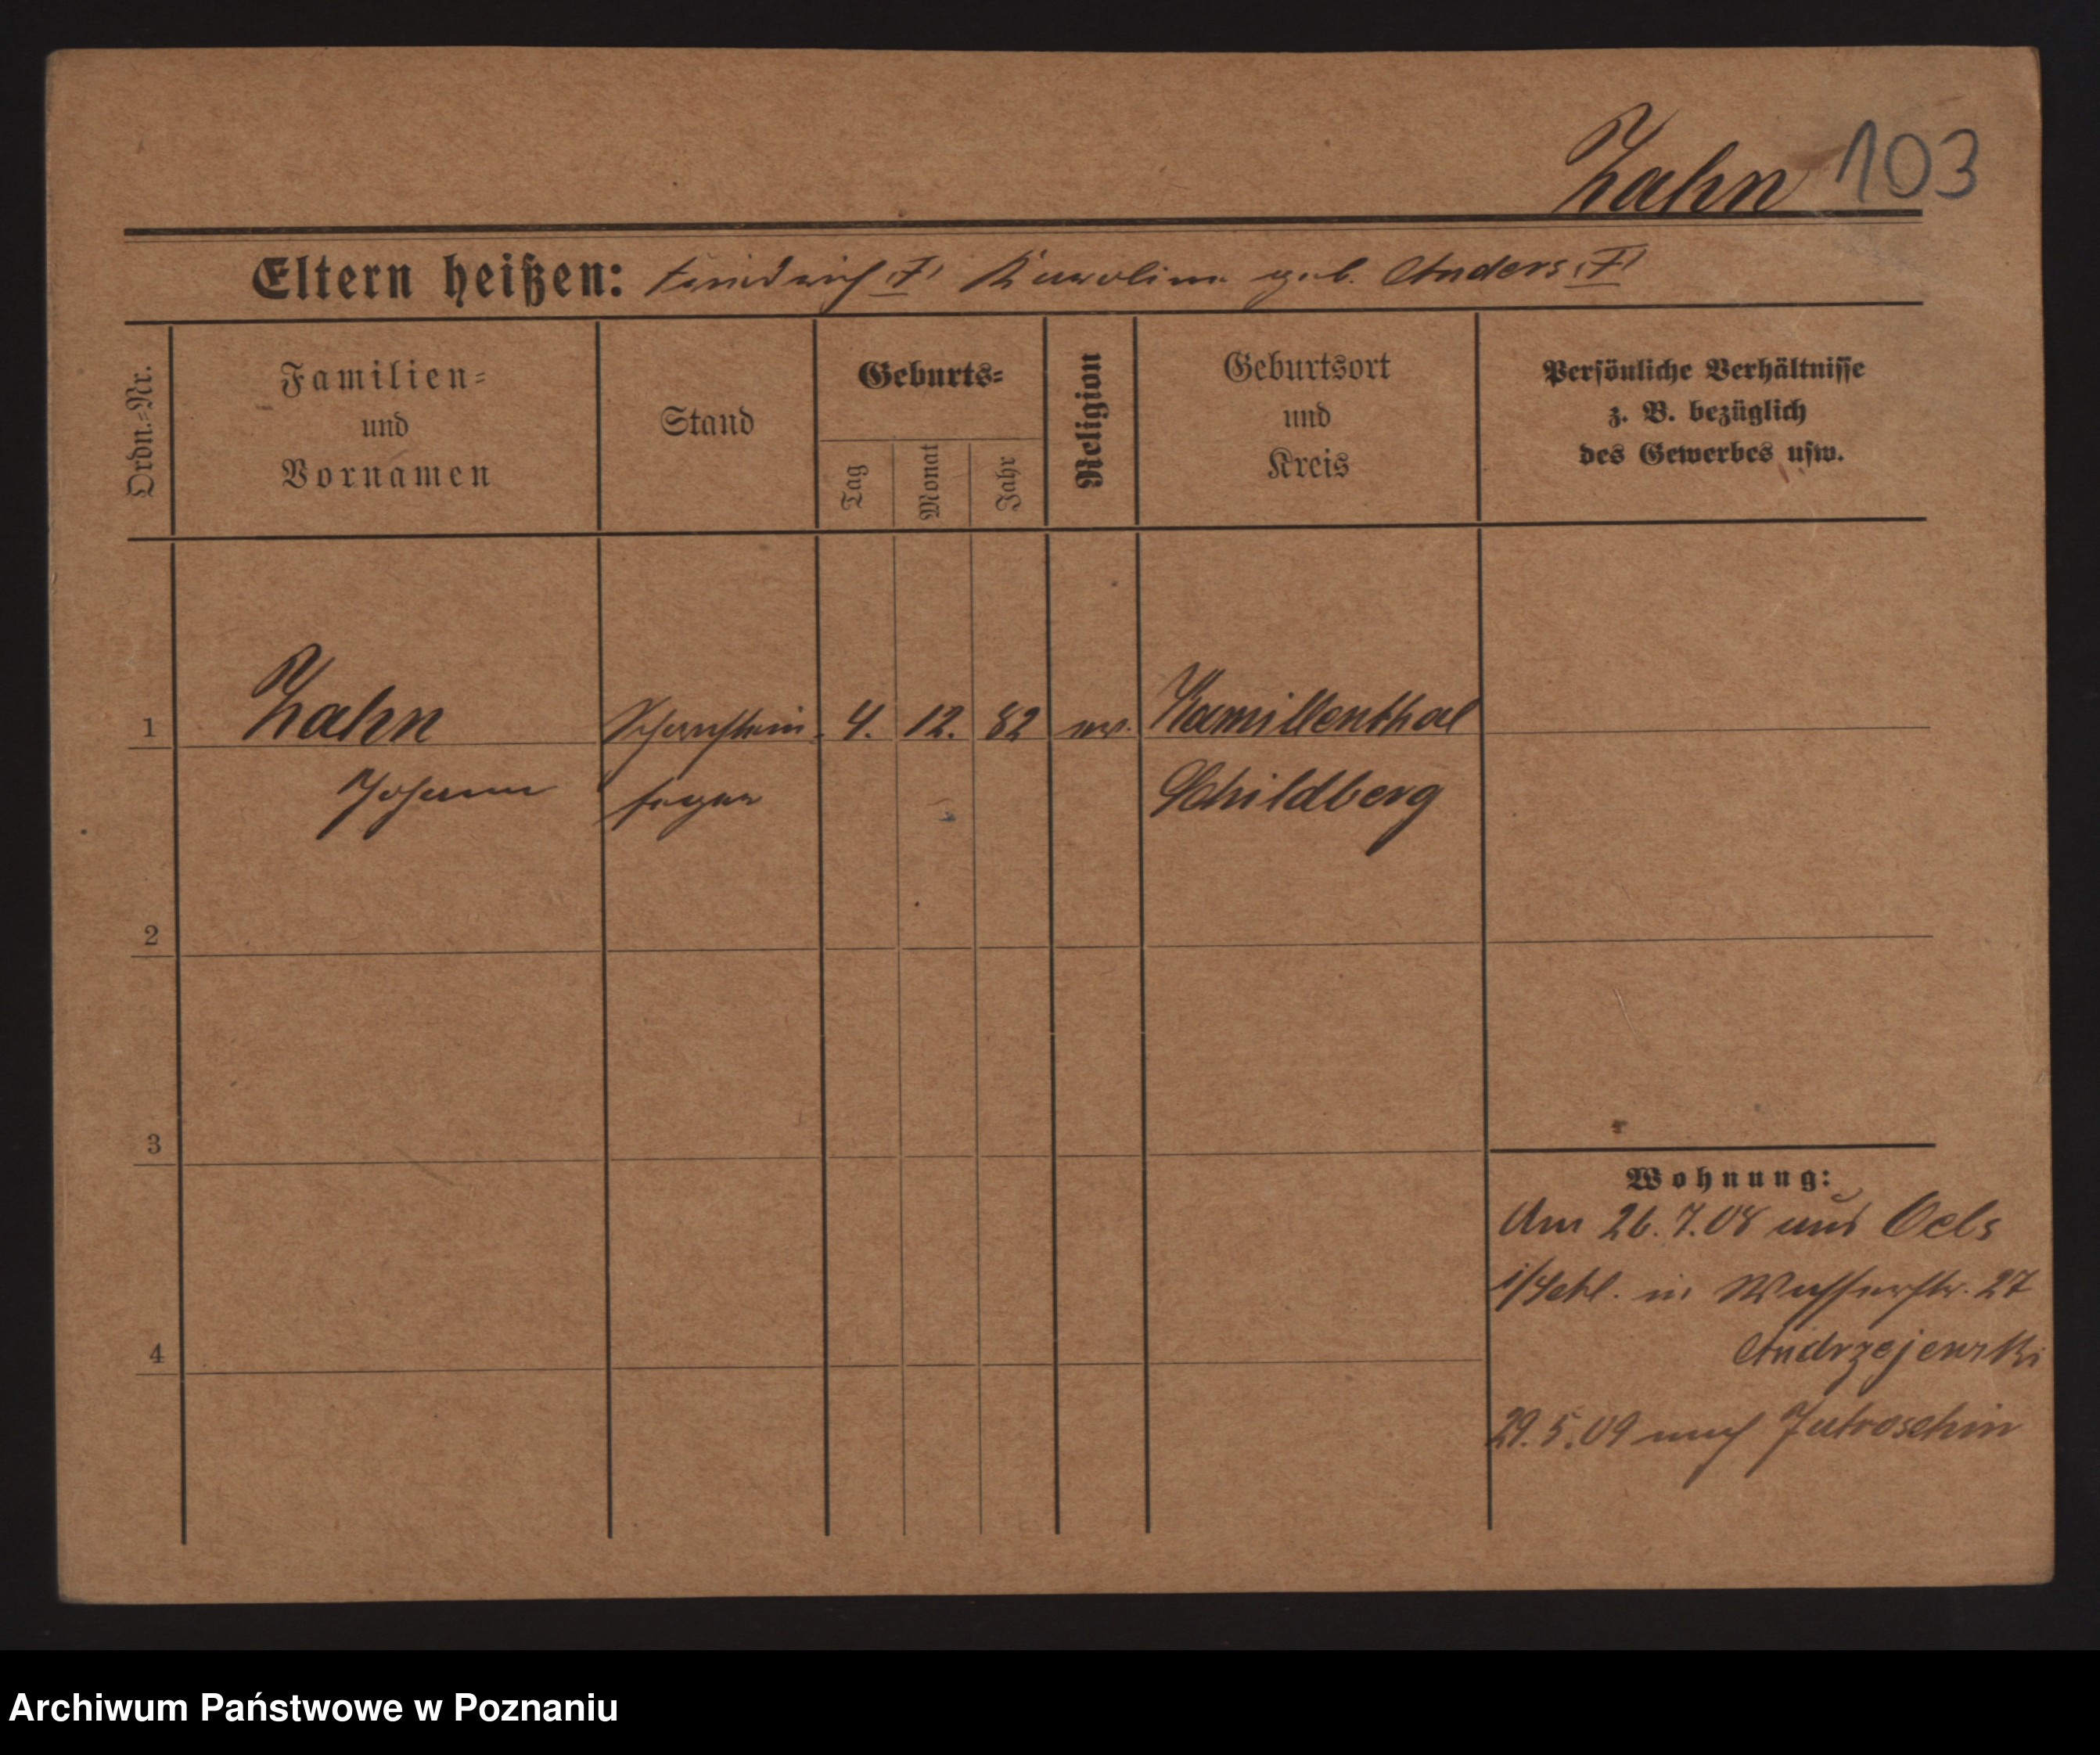 Zahn 103
Eltern heißen: Friedrich (†) Karolina geb. Anders (†)
Ordn.=Nr.
Familien=
und
Vornamen
Stand
Geburts=
Tag
Monat
Jahr
Religion
Geburtsort
und
Kreis
Persönliche Verhältnisse
z. B. bezüglich
des Gewerbes usw.
1 Zahn Schornstein 4. 12. 82 ev. Kamillenthal
Johann feger Schildberg
2
3
Wohnung:
Am 26.7.08 aus Oels
i/Schl. in Wasserstr. 27
4
Andrzejewski
29.5.09 nach Jutroschin
Archiwum Państwowe w Poznaniu